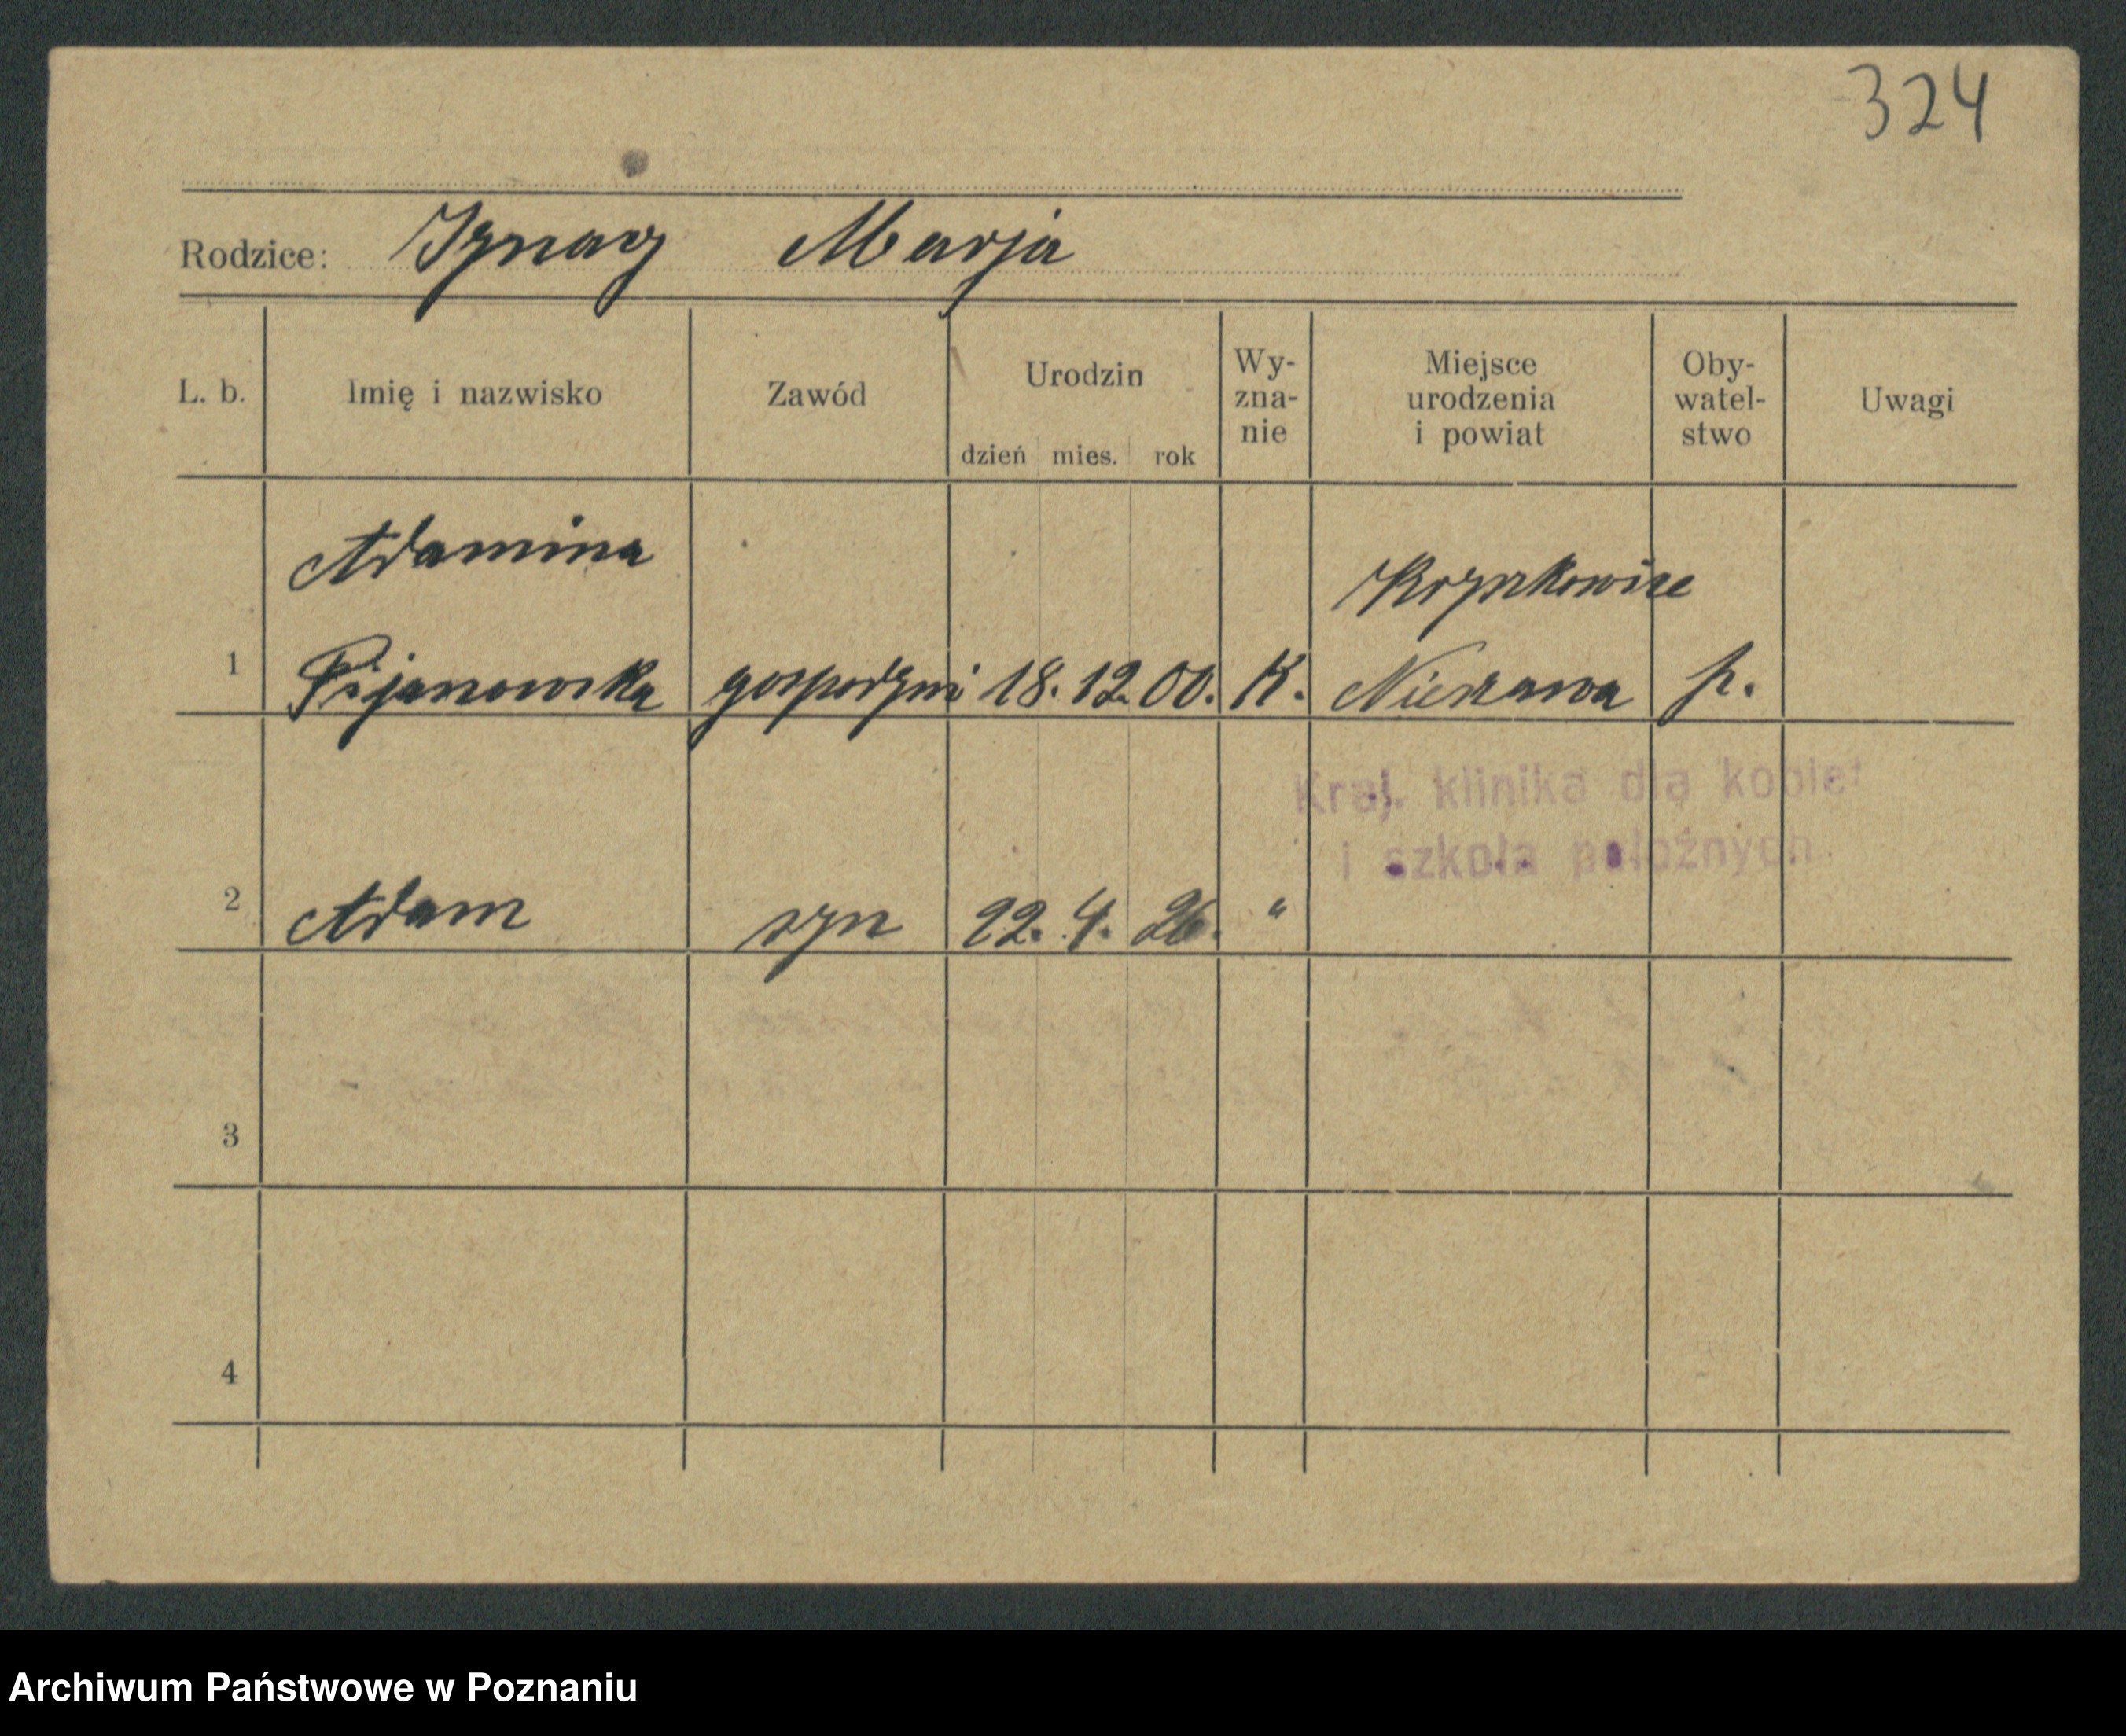 324
Rodzice: Ignacy Marja
L. b. Imię i nazwisko Zawód Urodzin dzień mies. rok Wy-zna-nie Miejsce urodzenia i powiat Oby-watel-stwo Uwagi
Adamina
1 Pijanowska gospodyni 18. 12. 00. K. Nieszawa p.
Kraj. klinika dla kobiet
i szkoła położnych
2 Adam syn 22. 4. 26. "
3
4
Archiwum Państwowe w Poznaniu